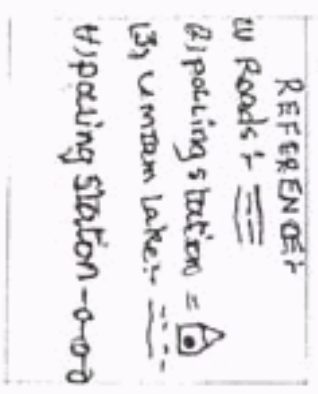 REFERENCE:-
(1) Roads :-
(2) polling station =
(3) Umiam Lake :-
(4) paling station -o-o-o